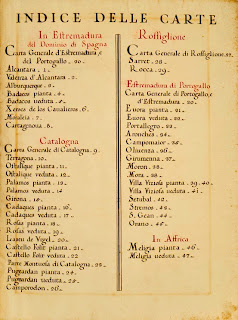 INDICE DELLE CARTE
In Estremadura
del Dominio di Spagna
Carta Generale d'Estremadura, e
del Portogallo, 20.
Alcantara, 1.
Valenza d'Alcantara, 2.
Alburquerque, 3.
Badacox pianta, 4.
Badacox veduta, 5.
Xeres de los Cavalieros, 6.
Moraleia, 7.
Cartagnosa, 8.
Catalogna
Carta Generale di Catalogna, 9.
Terragona, 10.
Ostalique pianta, 11.
Ostalique veduta, 12.
Palamos pianta, 13.
Palamos veduta, 14.
Girona, 15.
Cadaques pianta, 16.
Cadaques veduta, 17.
Rosas pianta, 18.
Rosas veduta, 19.
Llani de Vigel, 20.
Castello Folit pianta, 21.
Castello Folit veduta, 22.
Parte Montuosa di Catalogna, 23.
Puguardan pianta, 24.
Puguardan veduta, 25.
Camporodon, 26.
Rossiglione
Carta Generale di Rossiglione, 27.
Sarret, 28.
Rocca, 29.
Estremadura di Portogallo
Carta Generale di Portogallo, e
d'Estremadura, 20.
Euora pianta, 31.
Euora veduta, 32.
Portallegro, 33.
Aronches, 34.
Campomaior, 35.
Oliuenza, 36.
Girumenna, 37.
Moron, 38.
Mora, 38.
Villa Viziosa pianta, 39. 40.
Villa Viziosa veduta, 41.
Setubal, 42.
Stremos, 43.
S. Gean, 44.
Orano, 45.
In Affrica
Meligia pianta, 46.
Meligia veduta, 47.